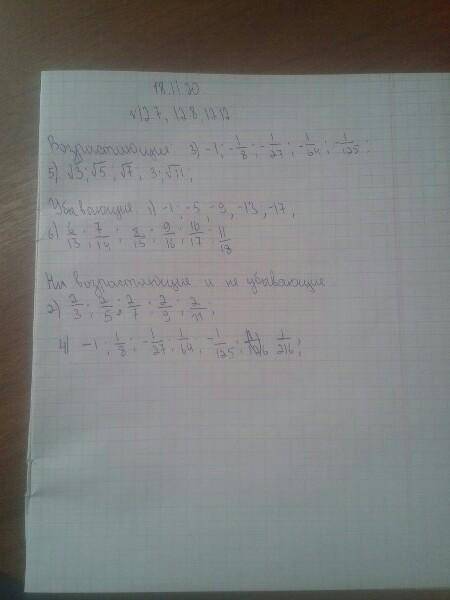 18.11.20
№12.7, 12.8, 12.12
Возрастающие 3) -1; -1/8; -1/27; -1/64; -1/125;
5) √3; √5; √7; 3; √11;
Убывающие 1) -1; -5, -9, -13, -17,
6) 6/13; 7/14; 8/15; 9/16; 10/17; 11/18
Ни возрастающие и не убывающие
2) 2/3; 2/5; 2/7; 2/9; 2/11;
4) -1; 1/8; -1/27; 1/64; -1/125; 1/216;